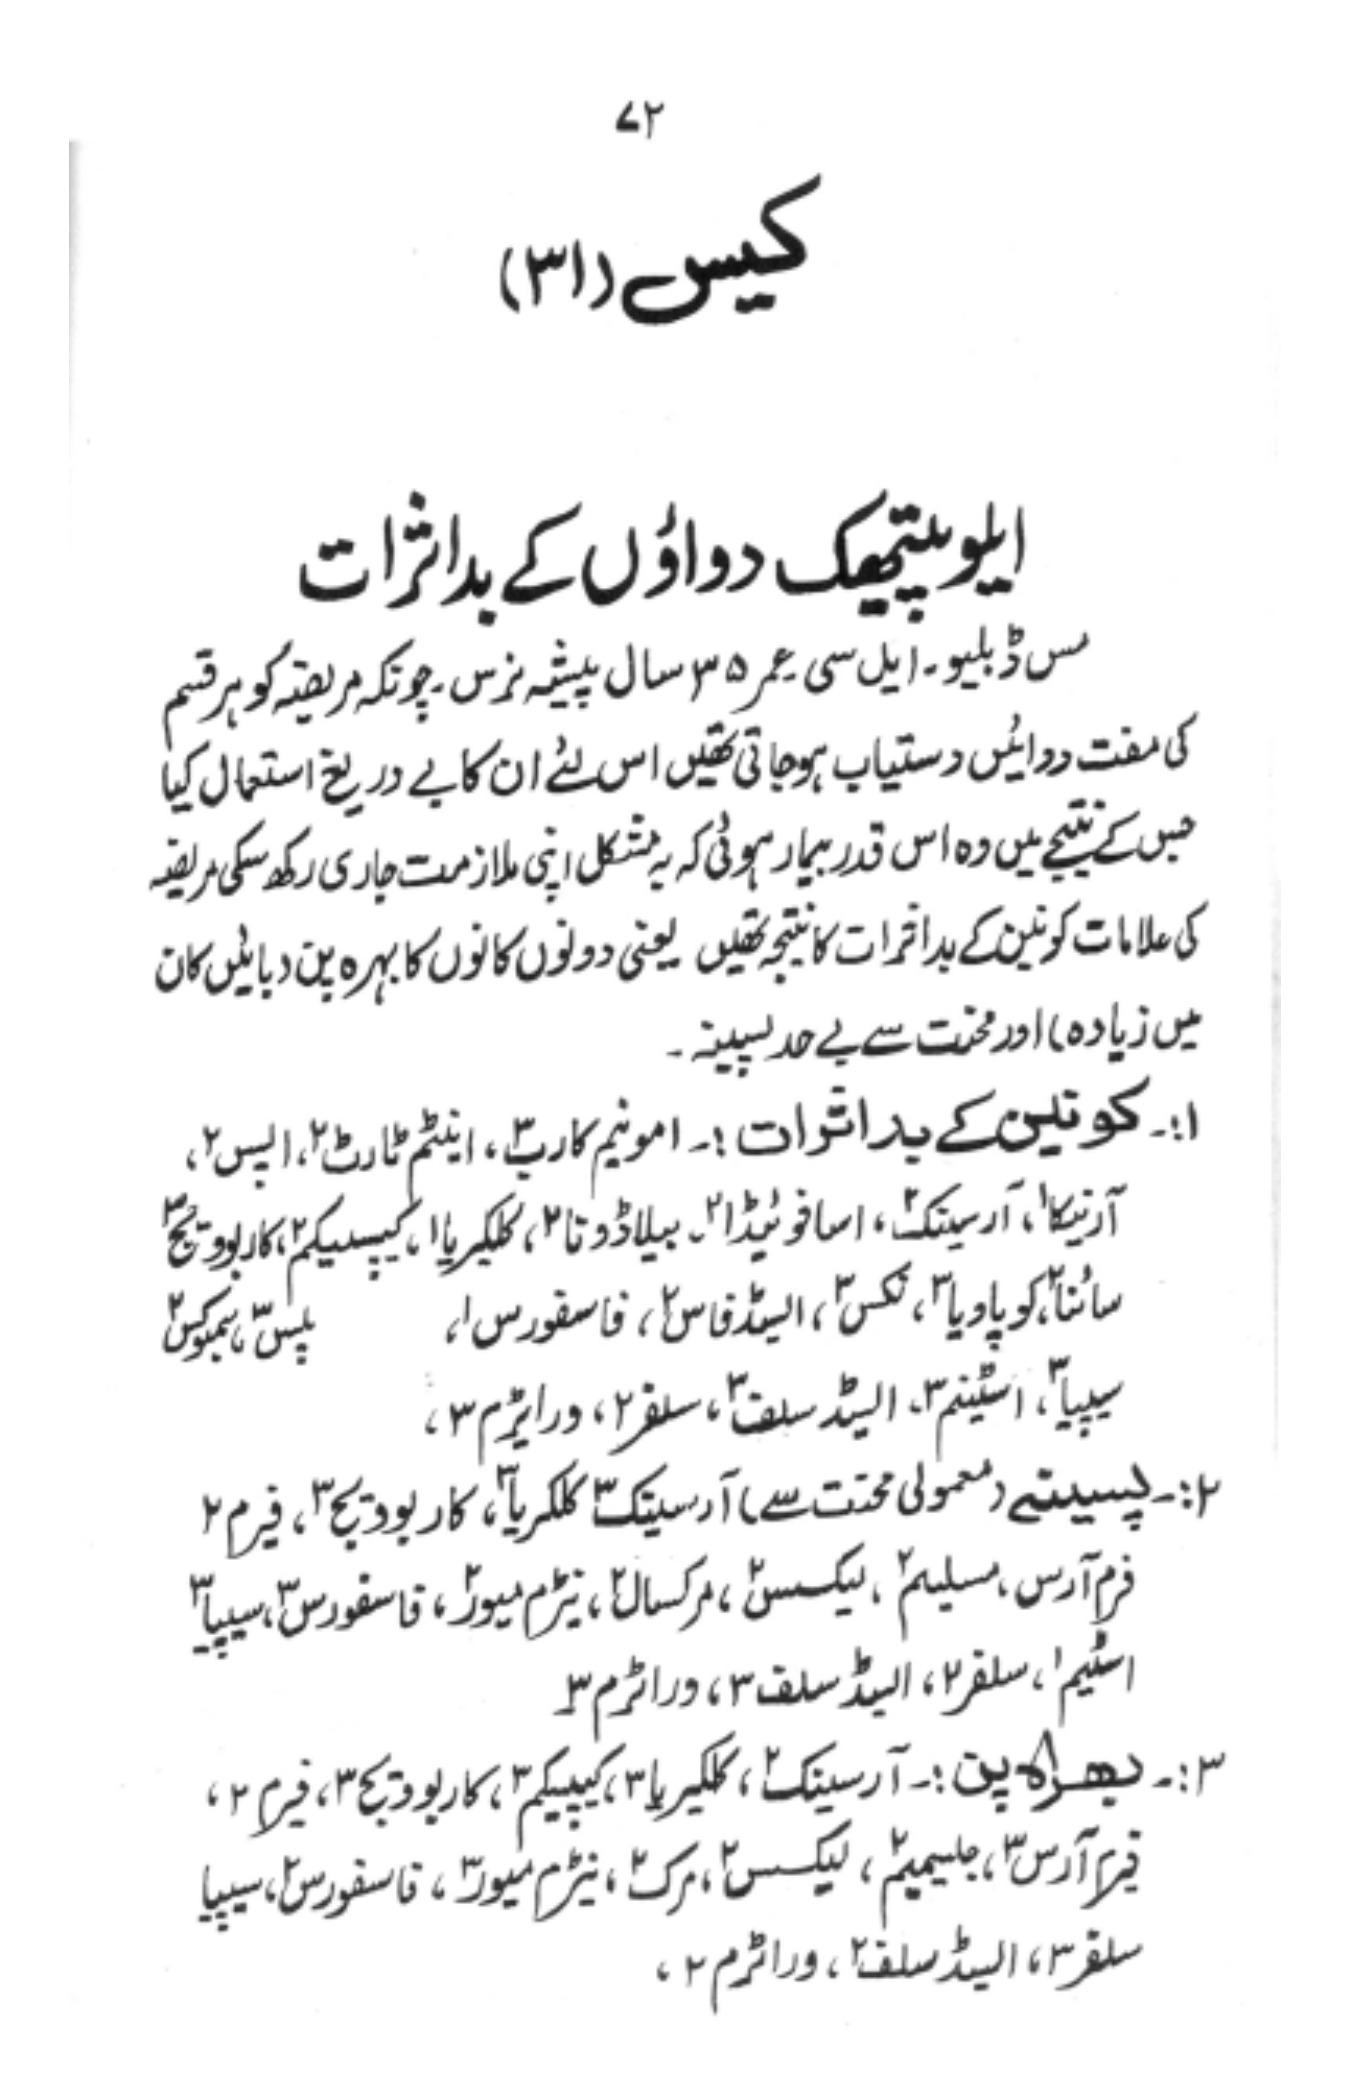 ۷۲
کیس (۳۱)
ایلوپیتھیک دواؤں کے بداثرات
مس ڈبلیو۔ ایل سی عمر ۳۵ سال پیشہ نرس۔ چونکہ مریضہ کو ہر قسم
کی مفت دوائیں دستیاب ہوجاتی تھیں اس لئے ان کا بے دریغ استعمال کیا
جس کے نتیجے میں وہ اس قدر بیمار ہوئی کہ بہ مشکل اپنی ملازمت جاری رکھ سکی مریضہ
کی علامات کونین کے بداثرات کا نتیجہ تھیں یعنی دونوں کانوں کا بہرہ پن (بائیں کان
میں زیادہ) اور محنت سے بے حد پسینہ۔
۱:۔ کونین کے بداثرات :۔ امونیم کارب ۳، اینٹم ٹارٹ ۲، ایپس ۲،
آرنیکا ۱، آرسینک ۲، اسافوئیڈا ۲۔ بیلاڈونا ۲، کلکیریا ۱، کیپسیکم ۲، کاربوویج ۳
سائنا ۲، کوپاویا ۳، نکس ۲، ایسڈ فاس ۲، فاسفورس ۱، پلس ۳، سمبوکس ۲
سیپیا ۳، اسٹینم ۳، ایسڈ سلف ۳، سلفر ۲، وراٹرم ۳،
۲:۔ پسینے (معمولی محنت سے) آرسینک ۳ کلکریا ۳، کاربوویج ۳، فیرم ۲
فرم آرس، سلیم ۲، لیکسس ۲، مرکسال ۲، نیٹرم میور ۲، فاسفورس ۳، سیپیا ۳
اسٹیم ۱، سلفر ۲، ایسڈ سلف ۳، وراٹرم ۳۔
۳:۔ بہرہ پن :۔ آرسینک ۲، کلکیریا ۳، کیپیکم ۳، کاربوویج ۳، فیرم ۲،
فیرم آرس ۳، جلسیمیم ۲، لیکسس ۲، مرک ۲، نیٹرم میور ۳، فاسفورس ۲، سیپیا
سلفر ۳، ایسڈ سلف ۲، وراٹرم ۲،